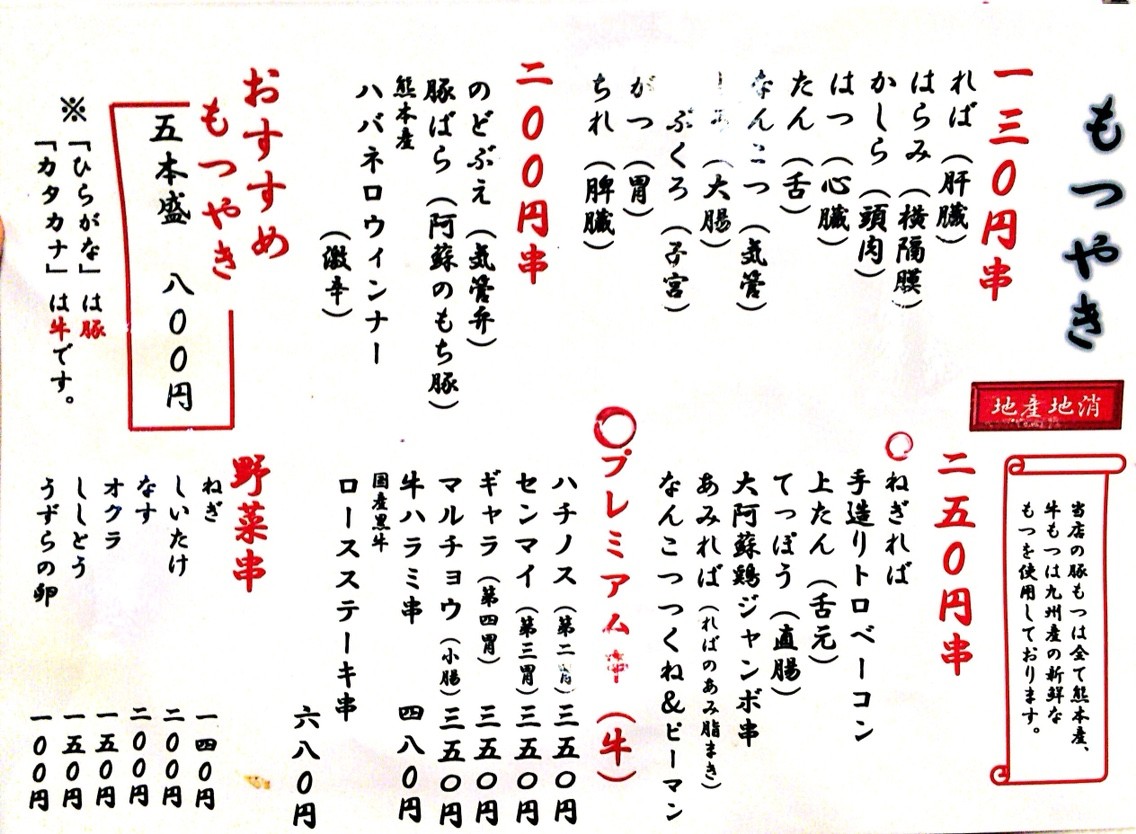 もつやき
地産地消
当店の豚もつは全て熊本産、
牛もつは九州産の新鮮な
もつを使用しております。
一三〇円串
れば（肝臓）
はらみ（横隔膜）
かしら（頭肉）
はつ（心臓）
たん（舌）
なんこつ（気管）
（大腸）
ぶくろ（子宮）
がつ（胃）
ちれ（脾臓）
二〇〇円串
のどぶえ（気管弁）
豚ばら（阿蘇のもち豚）
熊本産
ハバネロウィンナー
（激辛）
おすすめ
もつやき
五本盛 八〇〇円
※「ひらがな」は豚
「カタカナ」は牛です。
二五〇円串
ねぎれば
手造りトロベーコン
上たん（舌元）
てっぽう（直腸）
大阿蘇鶏ジャンボ串
あみれば（ればのあみ脂まき）
なんこつつくね＆ピーマン
プレミアム串（牛）
ハチノス（第二胃） 三五〇円
センマイ（第三胃） 三五〇円
ギャラ（第四胃） 三五〇円
マルチョウ（小腸） 三五〇円
牛ハラミ串 四八〇円
国産黒牛
ロースステーキ串 六八〇円
野菜串
ねぎ 一四〇円
しいたけ 二〇〇円
なす 二〇〇円
オクラ 一五〇円
ししとう 一五〇円
うずらの卵 一〇〇円